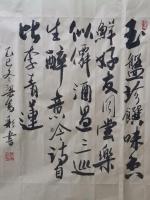 玉盤珍饌味香
鮮好友同堂樂
似僊酒過三巡
生醉意吟詩自
比李青蓮
乙巳冬
書